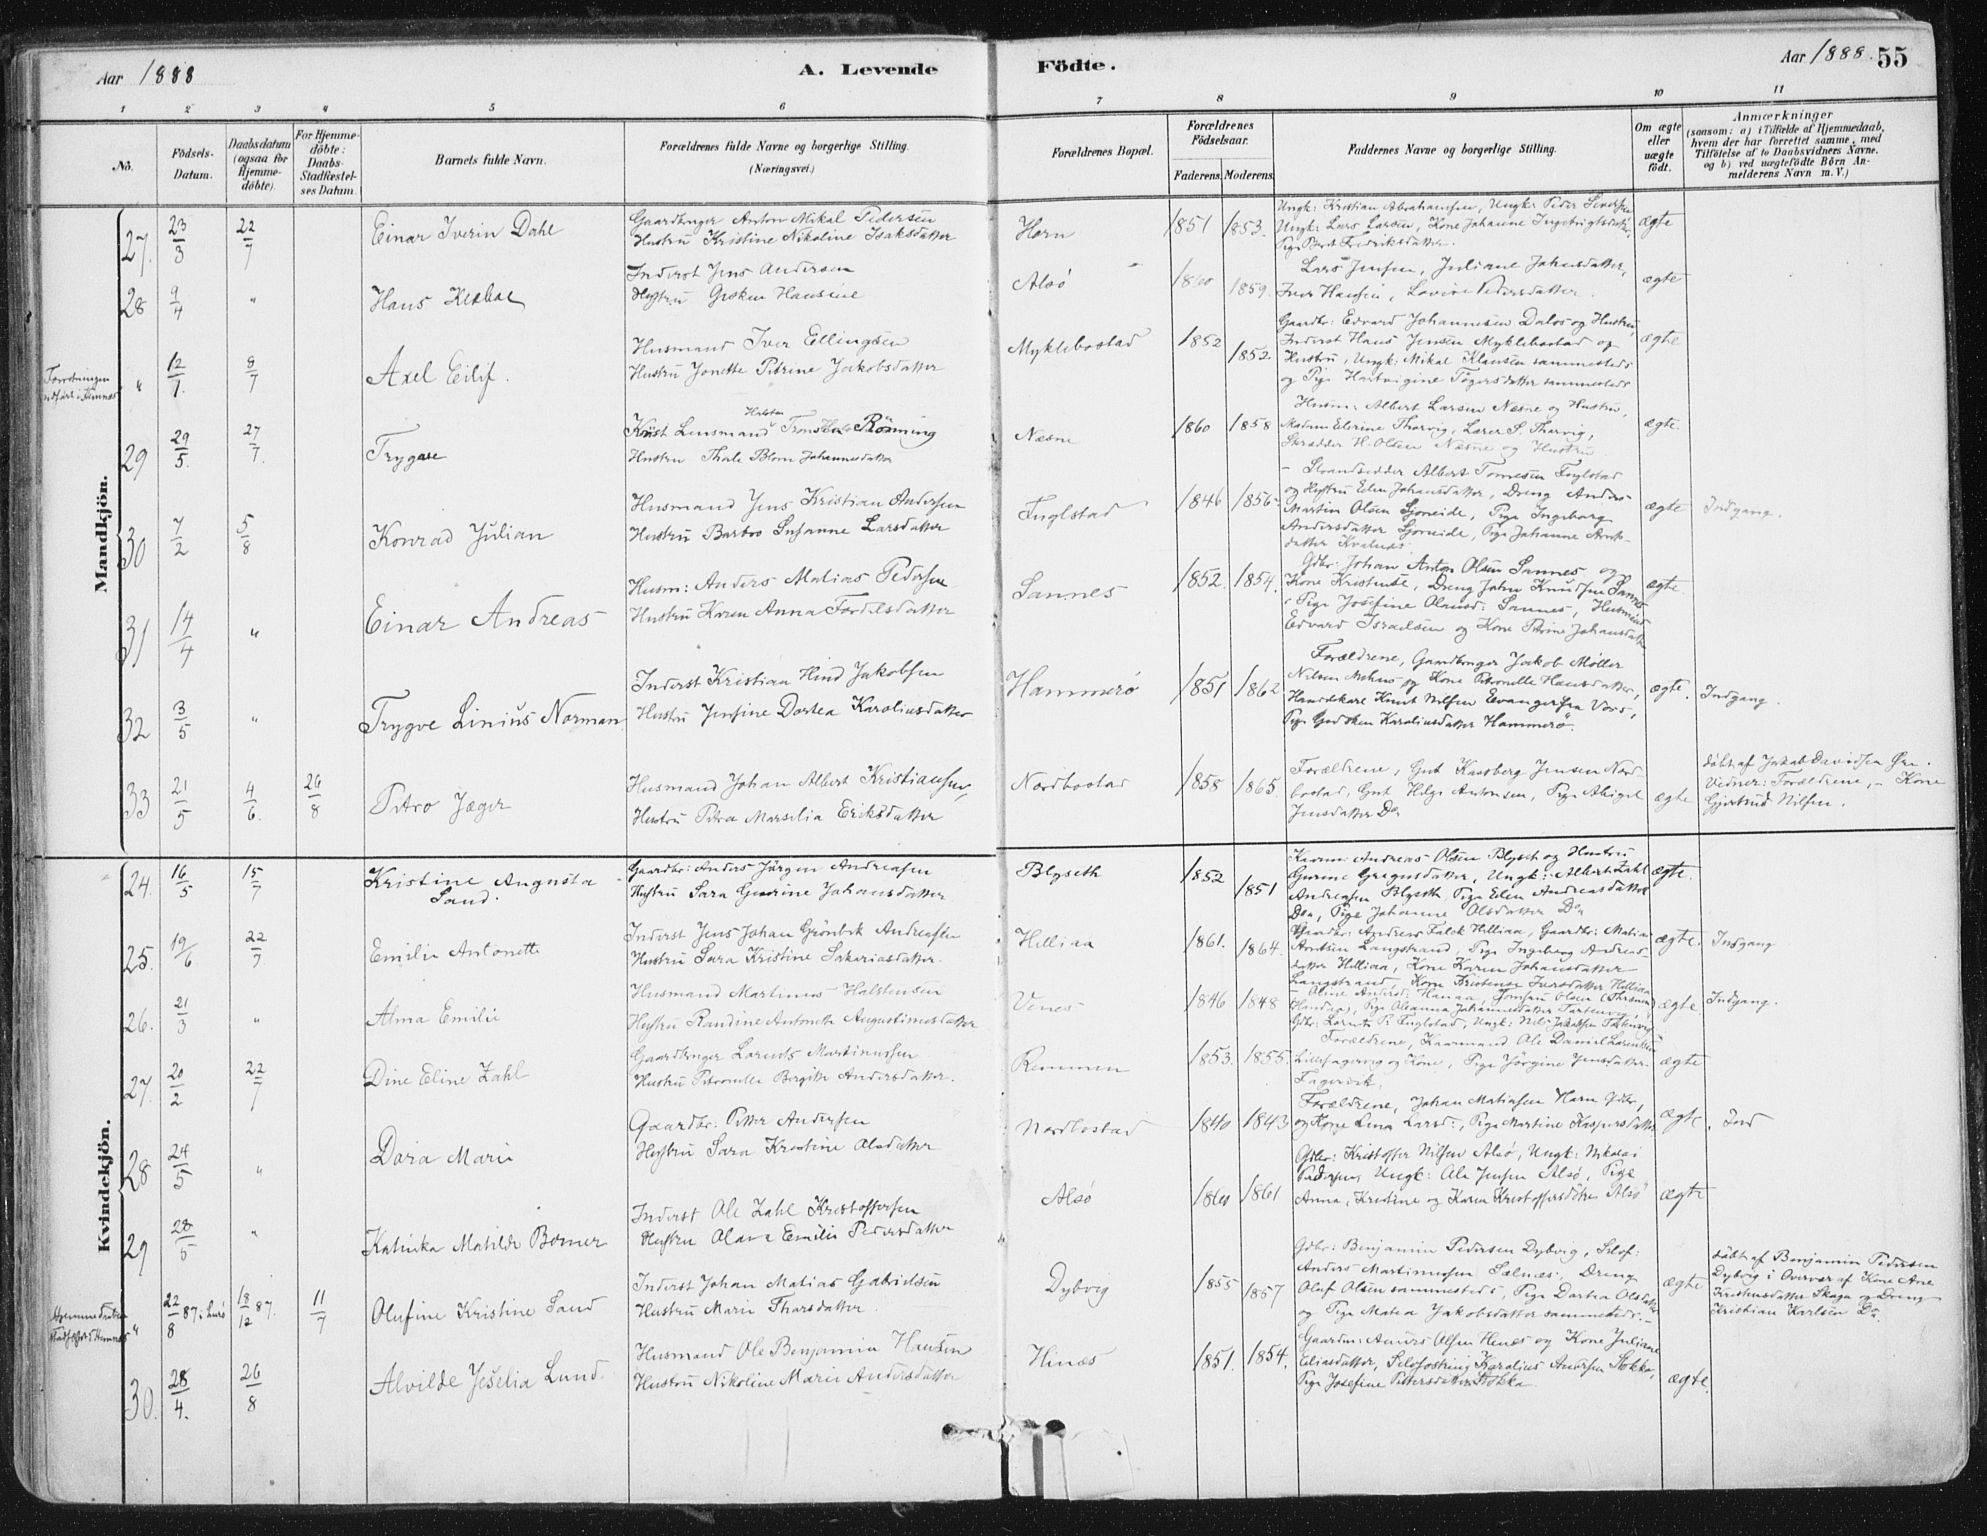 Aar 1888
A. Levende
Födte.
Aar 1888. 55
1 2 3 4 5 6 7 8 9 10 11
No.
Födsels-Datum.
Daabsdatum (ogsaa for Hjemme-döbte).
For Hjemme-döbte: Daabs-Stadfestel-ses Datum.
Barnets fulde Navn.
Forældrenes fulde Navne og borgerlige Stilling.
(Næringsvei.)
Forældrenes Bopæl.
Forældrenes Födselsaar.
Faderens. Moderens.
Faddernes Navne og borgerlige Stilling.
Om ægte eller uægte födt.
Anmærkninger
(saasom: a) i Tilfælde af Hjemmedaab, hvem der har forrettet samme, med Tilföielse af to Daabsvidners Navne, og b) ved uægtefödte Börn An-melderens Navn m. V.)
Mandkjön.
27. 23/3 22/7 Einar Iverin Dahl
Gaardbruger Anton Mikal Pedersen
Hustru Kristine Nikoline Isaksdatter
Horn 1851 1853.
Ungk: Kristian Abrahamsen, Ungk: Peder Sivertsen
Ungk: Lars Larsen, Kone Johanne Ingebrigtsdatter,
Pige Berit Fredriksdatter.
ægte
28 9/4 " Hans
Inderst Jens Andersen
Hustru Hansine
Alsö 1860 1859.
Lars Jensen, Juliane Johnsdatter,
Iver Hansen, Lovise Pedersdatter.
ægte
" 12/1. 8/7 Axel Eilif.
Husmand Iver Ellingsen
Hustru Jonette Petrine Jakobsdatter
Myklebostad 1852 1852.
Gaardbr: Edvard Johannesen Dalos og Hustru,
Inderst Hans Jensen Myklebostad og
Hustru, Ungk: Mikal Klausen sammesteds
og Pige Hartvigine Tögersdatter sammesteds
ægte
29 29/5. 27/7. Trygve
Lensmand Rönning
Hustru Thale Blom Johannesdatter
Næsne 1860 1858
Husm: Albert Larsen Næsne og Hustru,
Madam Elerine Thorvig, Lærer S. Thorvig,
Skrædder H. Olsen Næsne og Hustru
ægte.
30 7/2 5/8 Konrad Julian
Husmand Jens Kristian Andersen
Hustru Barbro Susanne Larsdatter
Fuglstad 1846 1856.
Strandsidder Albert Tomesen Fuglstad
og Hustru Elen Johansdatter, Dreng Anders
Martin Olsen Sjoneide, Pige Ingeborg
Andersdatter Sjoneide, Pige Johanne
datter Kvalnes
ægte Indgang.
31 14/4 " Einar Andreas
Husm: Anders Matias Pedersen
Hustru Karen Anna Fordelsdatter
Sannes 1852. 1854.
Gdbr: Johan Anton Olsen Sannes og
Kone Kristense, Dreng John Knudsen Sannes
Pige Josefine Olausd: Sannes, Husmand
Edvard Israelsen og Kone Petrine Johansdatter
ægte.
32 3/5 " Trygve Linius Norman
Inderst Kristian Hind Jakobsen
Hustru Jensine Dortea Karoliusdatter
Hammerö 1851 1862
Forældrene, Gaardbruger Jakob Möller
Nilsen og Kone Petronelle Hansdatter,
Handelskar Knut Nilsen Evangersen Vors,
Pige Gudsken Karoliusdatter Hammerö.
ægte. Indgang.
33 21/5 4/6. 26/8 Petro Jæger
Husmand Johan Albert Kristiansen,
Hustru Petra Marselia Eriksdatter
Nordbostad 1858 1865
Forældrene, Gut Kaasberg Jensen Nord-
bostad, Gut Helge Antonsen, Pige Abigel
Jensdatter Do
ægte
döbt af Jakob Davidsen Öen.
Vidner: Forældrene, - Kone
Gjertrud Nilsen.
Kvindekjön.
24. 16/5 15/7 Kristine Augusta
Sand.
Gaardbr: Anders Jörgen Andreasen
Hustru Sara Gurine Johansdatter
Blyseth 1852 1851
Andreas Olsen Blyset og Hustru
Gurine Gregusdatter, Ungk: Albert Zahl
Andreasen Blyseth, Pige Elen Andreasdatter
Do, Pige Johanne Olsdatter Do
ægte.
25. 19/6 22/7. Emilie Antonette
Inderst Jens Johan Grönbek Andreasen
Hustru Sara Kristine Sakariasdatter.
Helliaa 1861. 1864.
Gaardbr: Andreas Falck Helliaa, Gaardbr: Matias
Arntsen Langstrand, Pige Ingeborg Andreas-
datter Helliaa, Kone Karen Johansdatter
Langstrand, Kone Kristense Iversdatter Helliaa
ægte. Indgang
26. 21/3 " Alma Emilie
Husmand Martinus Halstensen
Hustru Randine Antonette Augustinusdatter
Venes 1846 1848
Pige Oleanna Johannesdatter
Gdbr: Lorents P. Fuglstad, Ungk: Nils Jakobsen
ægte Indgang.
27. 20/2 22/7 Dine Eline Zahl
Gaardbruger Lorents Martinussen
Hustru Petronelle Bergitte Andersdatter.
Remmen 1853. 1855.
Forældrene, Kaarmand Ole Daniel Lorentsen
Lillefagervig og Kone, Pige Jörgine Jensdatter
Fagervik.
ægte
28 24/5 " Dora Marie
Gaardbr: Petter Andersen
Hustru Sara Kristine Olsdatter
Nordbostad 1840 1843
Forældrene, Johan Matiasen Horn Gdbr,
og Kone Lina Larsd:, Pige Martine Kaspersdatter
ægte. Ind
29 28/5 " Katinka Matilde Bomer
Inderst Ole Zahl Kristoffersen
Hustru Olava Emilie Pedersdatter
Alsö 1860 1861
Gdbr: Kristoffer Nilsen Alsö, Ungk: Nikolai
Pedersen, Ungk: Ole Jensen Alsö, Pige
Anna, Kristine og Karen Kristoffersdötre Alsö
ægte
" 22/8 87 i Lurö 18/12 87. 11/7 Olufine Kristine Sand
Inderst Johan Matias Gabrielsen
Hustru Marie Thorsdatter
Dybvig 1855 1857
Gdbr: Benjamin Pedersen Dybvig, Selvf:
Anders Martinussen Selnæs. Dreng
Oluf Olsen sammesteds, Pige Dortea Olsdatter
og Pige Matea Jakobsdatter sammesteds.
ægte
döbt af Benjamin Pedersen
Dybvig i Overvær af Kone Ane
Kristensdatter Skaga og Dreng
Kristian Karlsen Do.
30. 28/4. 26/8 Alvilde Jeselia Lund.
Husmand Ole Benjamin Hansen
Hustru Nikoline Marie Andersdatter
Hinæs 1851. 1854.
Gaardm: Anders Olsen Henæs og Kone Juliane
Eliasdatter, Selvfostring Karolius Andersen Stokka,
Pige Josefine Pettersdatter Stokka.
ægte.